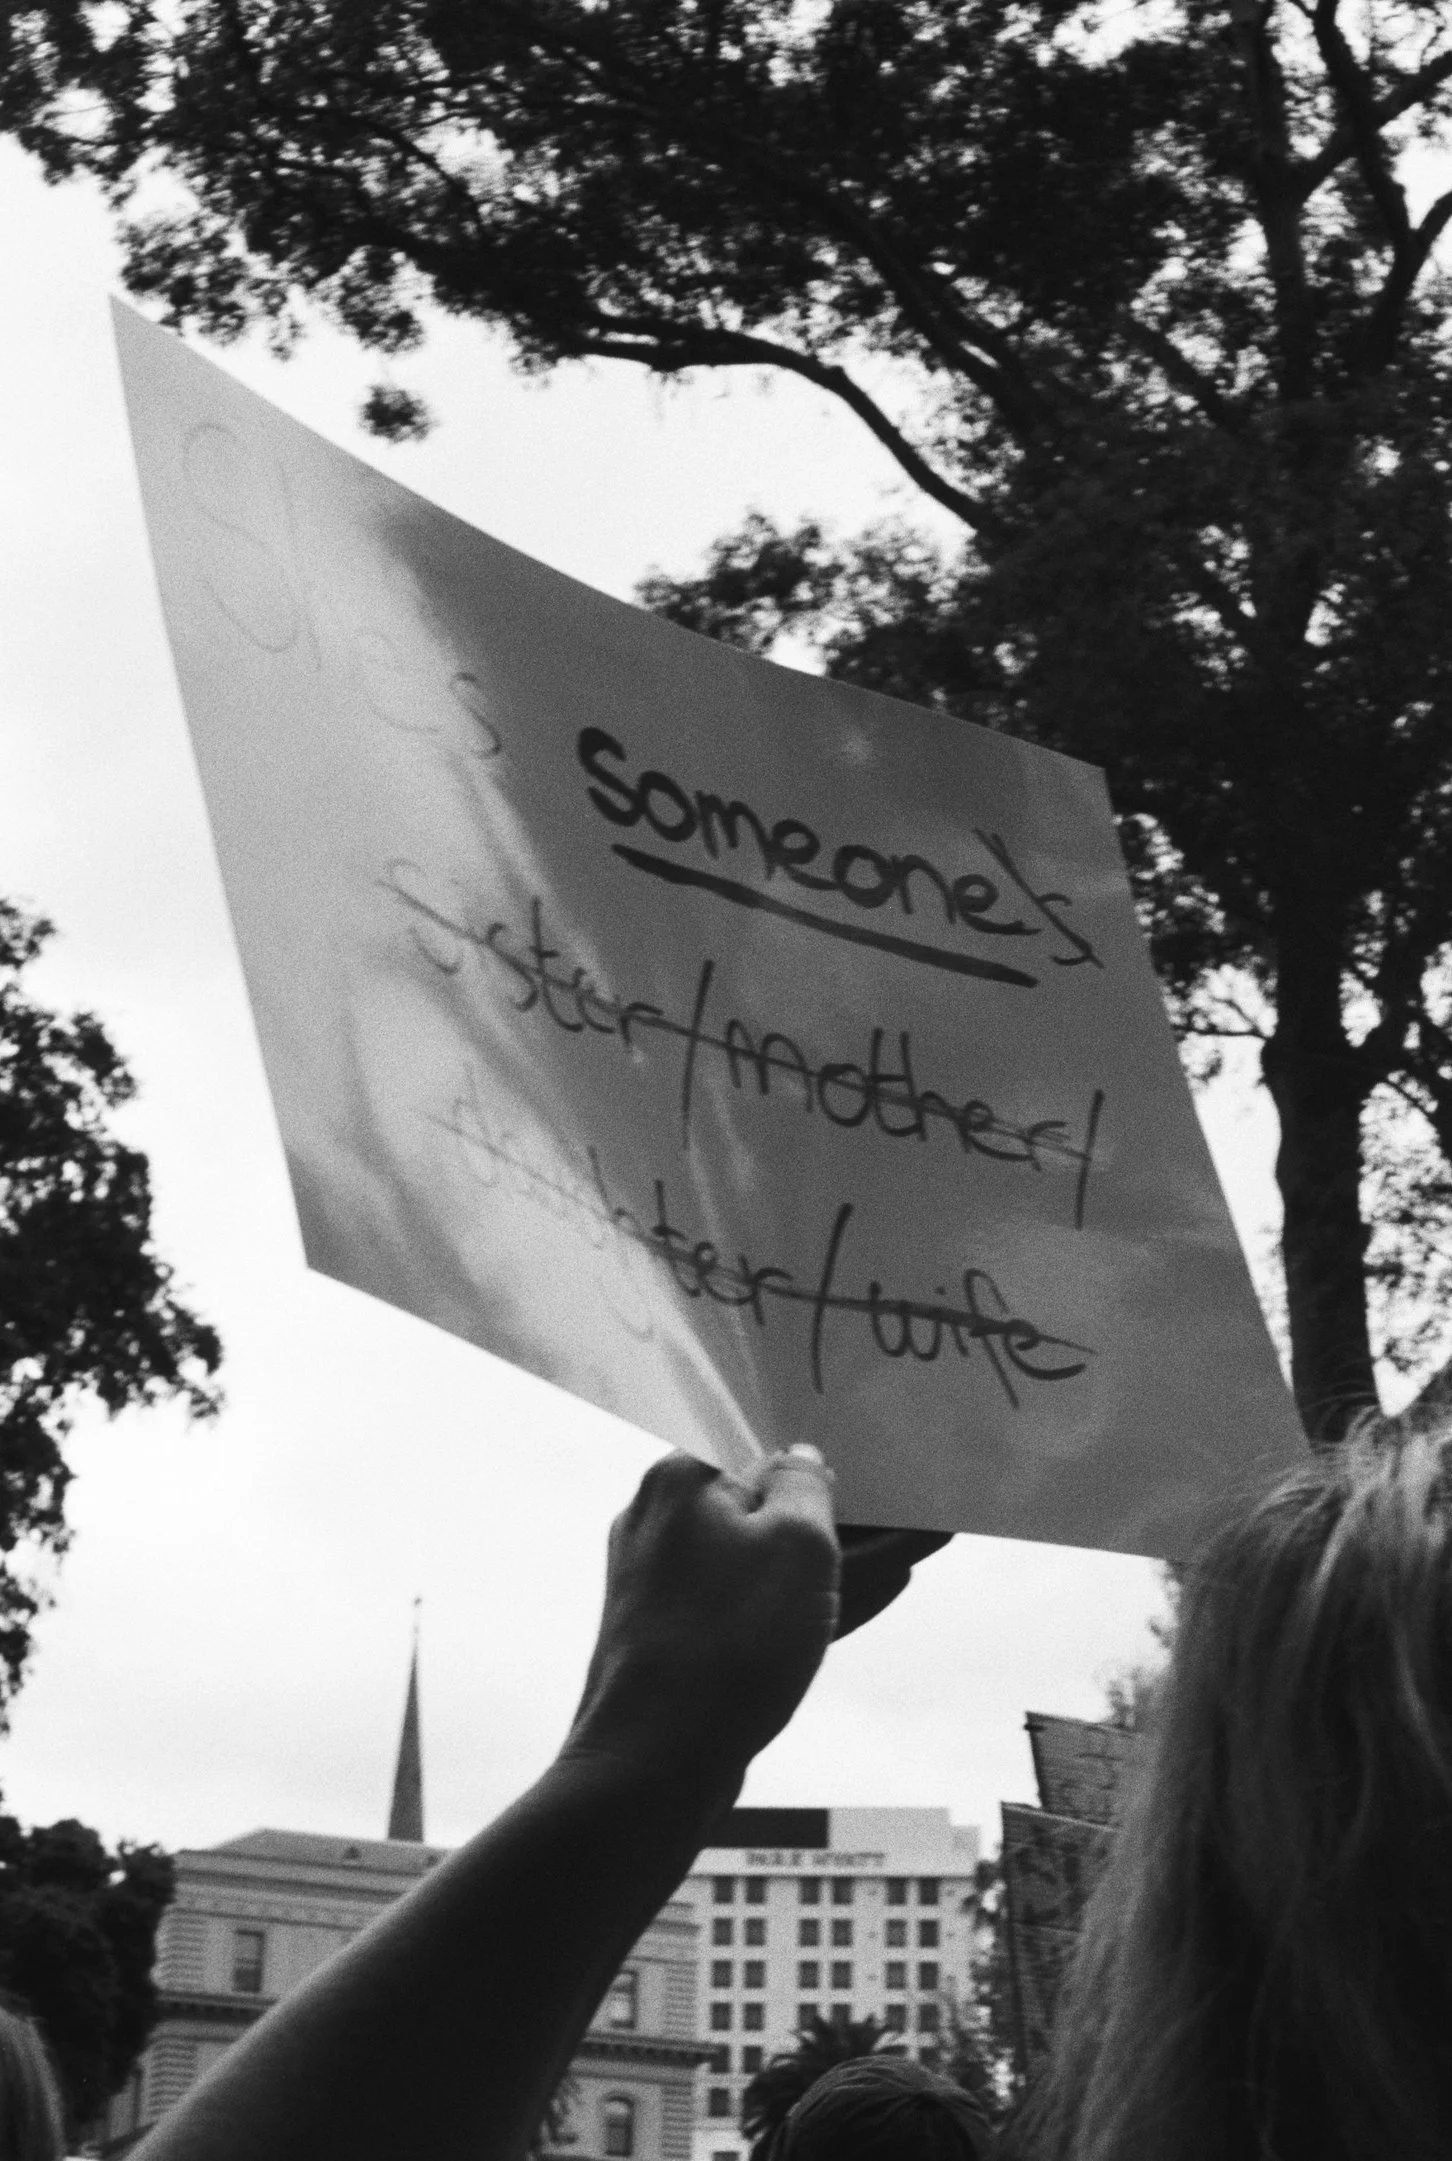 She's someone's
sister/mother/
daughter/wife
PARK HYATT